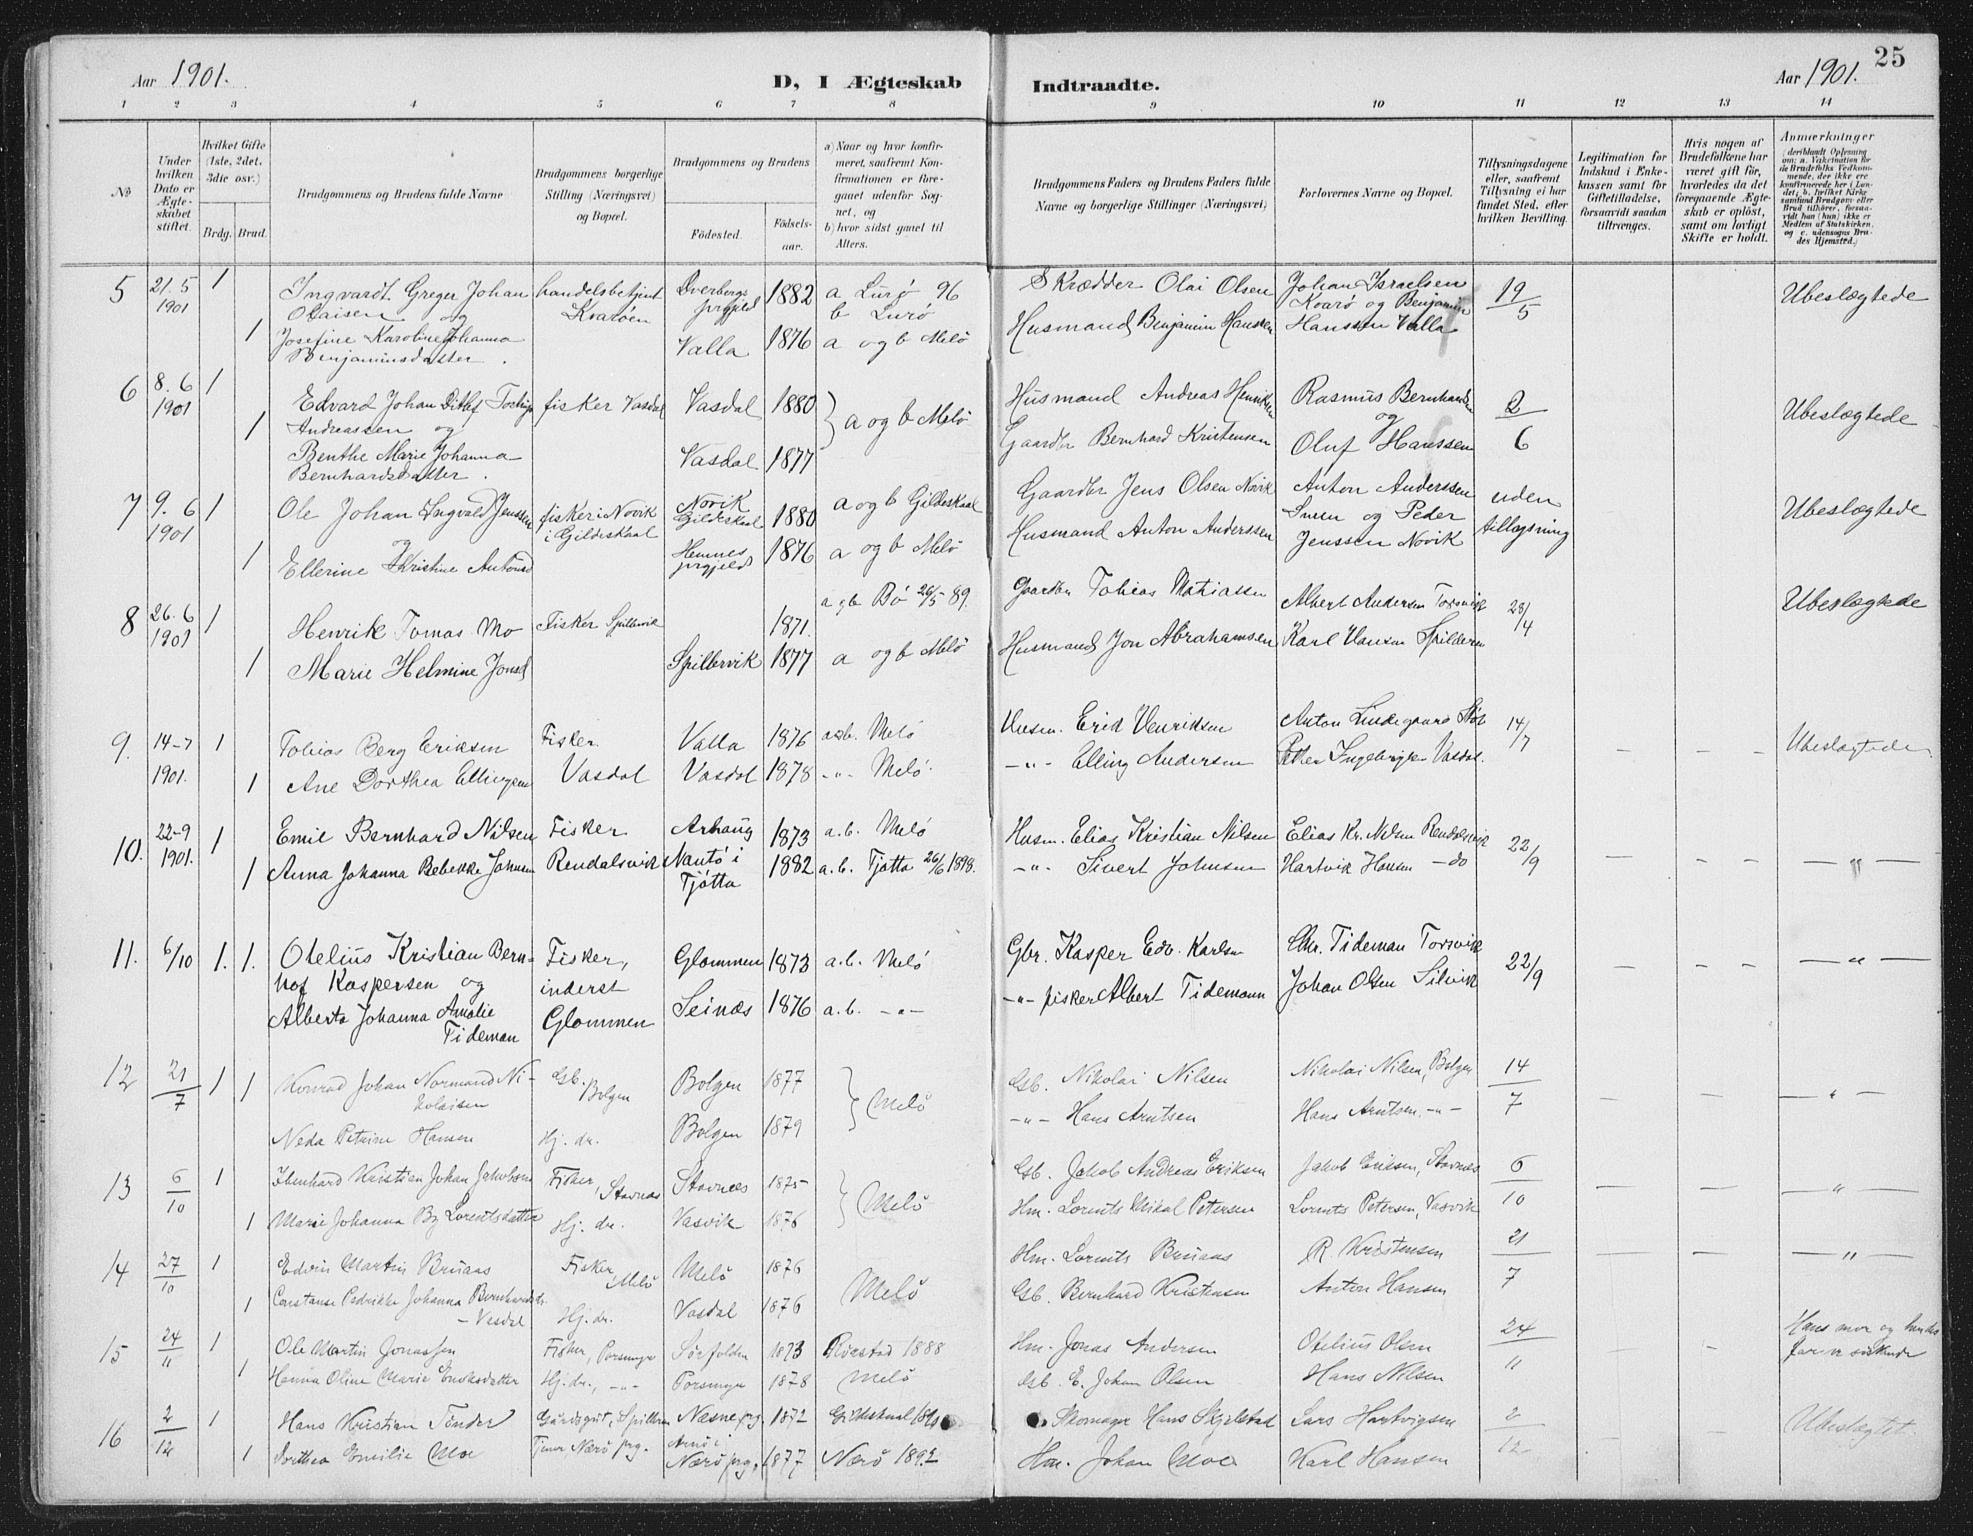 Aar 1901.
D, I Ægteskab
Indtraadte.
Aar 1901.
25
1 2 3 4 5 6 7 8 9 10 11 12 13 14
No
Under hvilken Dato er Ægteskabet stiftet.
Hvilket Gifte (1ste, 2det, 3die osv.)
Brdg. Brud.
Brudgommens og Brudens fulde Navne
Brudgommens borgerlige Stilling (Næringsvei) og Bopæl.
Brudgommens og Brudens
Fødested.
Fødselsaar.
a) Naar og hvor konfirmeret, saafremt Konfirmationen er foregaaet udenfor Sognet, og
b) hvor sidst gaaet til Alters.
Brudgommens Faders og Brudens Faders fulde Navne og borgerlige Stillinger (Næringsvei)
Forlovernes Navne og Bopæl.
Tillysningsdagene eller, saafremt Tillysning ei har fundet Sted, efter hvilken Bevilling.
Legitimation for Indskud i Enkekassen samt for Giftetilladelse, forsaavidt saadan tiltrænges.
Hvis nogen af Brudefolkene har været gift før, hvorledes da det foregaaende Ægteskab er opløst, samt om lovligt Skifte er holdt.
Anmerkninger (deriblandt Oplysning om: a. Vakcination for de Brudefolks Vedkommende, der ikke ere konfirmerede her i Landet; b. hvilket Kirkesamfund Brudgom eller Brud tilhører, forsaavidt han (hun) ikke er Medlem af Statskirken, og c. udensogns Brudes Hjemsted.)
5 21.5 1901 1 Ingvardt Greger Johan handelsbetjent Dverbergs prgjeld 1882 a Lurø 96 Skrædder Olai Olsen Johan Israelsen 19/5 Ubeslægtede
Olaisen og Kvarøen b Lurø Kvarø og Benjamin
1 Josefine Karoline Johanna Valla 1876 a og b Melö Husmand Benjamin Hanssen Hanssen Valla
Benjaminsdatter.
6 8.6 1901 1 Edvard Johan Ditlef fisker Vasdal Vasdal 1880 a og b Melö Husmand Andreas Henriksen Rasmus Bernhardsen 2/6 Ubeslægtede
1 Andreassen og og
Benthe Marie Johanna Vasdal 1877 Gaardbr Bernhard Kristensen Oluf Hanssen
Bernhardsdatter.
7 9.6 1901 1 Ole Johan Ingvald Jenssen fisker i Novik Novik Gildeskaal 1880 a og b Gildeskaal Gaardbr Jens Olsen Novik Anton Anderssen uden Ubeslægtede
og i Gildeskaal og Peder tillysning
1 Ellerine Kristine Antonsd Hemnes prgjeld 1876 a og b Melö Husmand Anton Anderssen Jenssen Novik
8 26.6 1901 1 Henrik Tomas Mo Fisker Spillervik 1871. a og b Bö 26/5 89. Gaardbr Tobias Mathiassen Albert Andersen Torsvik 28/4 Ubeslægtede
1 Marie Helmine Jonsd Spillervik 1877 a og b Melö Husmand Jon Abrahamsen Karl Hansen Spilderen
9. 14-7 1901. 1 Tobias Berg Eriksen Fisker Valla 1876 a&b. Melö Husm. Erid Henriksen Anton Lindegaard 14/7 — — — Ubeslægtede
1 Ane Dorthea Ellingsen Vasdal Vasdal 1878 -"- Melö -"- Elling Andersen Peter Ingebrigtsen Vasdal.
10. 22-9 1901. 1 Emil Bernhard Nilsen Fisker Arhaug 1873 a.b. Melö Husm. Elias Kristian Nilsen Elias Kr. Nilsen Rendalsvik 22/9 — — — —"—
1 Anna Johanna Bebekke Johnsen Rendalsvik Nantö i Tjötta 1882 a.b. Tjøtta 26/6 1898. -"- Sivert Johnsen Hartvik Hansen -do
11. 6/10 1. 1. Otelius Kristian Bern- Fisker, Glommen 1873 a.b. Melö Gbr. Kasper Edv. Karlsen Chr. Tideman Torsvik 22/9 — — — —"—
hof Kaspersen og inderst
Alberta Johanna Amalie Glommen Seinæs 1876 a.b. -"- -"- fisker Albert Tidemann Johan Olsen Silvik
Tideman
12 21/7 1 1 Konrad Johan Normand Ni- Gb. Bolgen Bolgen 1877 Melö Gb. Nikolai Nilsen Nikolai Nilsen, Bolgen 14/7 — — —"—
kolaisen
Neda Petrine Hansen Hj. dr. Bolgen 1879 -"- Hans Arntsen Hans Arntsen -"-
13 6/10 1 Ehenhard Kristian Johan Jakobsen Fisker, Stavnæs Stavnæs 1875 Melö Gb. Jakob Andreas Eriksen Jakob Eriksen, Stavnæs 6/10 — — —"—
1 Marie Johanna By Lorentsdatter Hj. dr. Vasvik 1876 Hm. Lornts Mikal Petersen Lornts Petersen, Vasvik
14 27/10 1 Edvin Martin Bruaas Fisker Melö Melö 1876 Melö Hm. Lornts Bruaas R. Kristensen 21/7 — —"—
1 Constanse Johanna Bernhardsdr. Vasdal Hj. dr. Vasdal 1876 Gb. Bernhard Kristensen Anton Hansen
15 24/11 1 Ole Martin Jonassen Fisker, Porsmyr Sørfolden 1873 Rørstad 1888 Hm. Jonas Andersen Otelius Olsen 24/11 — — Hans mor og hendes
1 Hanna Oline Marie Enoksdatter Hj. dr., -"- Porsmyr 1878 Melö Gb. E. Johan Olsen Hans Nilsen far er søskende
16 2/12 1 Hans Kristian Tönder Gårdsgut, Næsne prg. 1872 Gildeskaal Skomager Hans Skjelstad Lars Hartvigsen 2/12 — — Ubeslægtet
1 Dorthea Emilie Moe Tjener Nærö prg. Arnö i Nærö prg. 1877 Nærö 1892 Hm. Johan Moe Karl Hansen